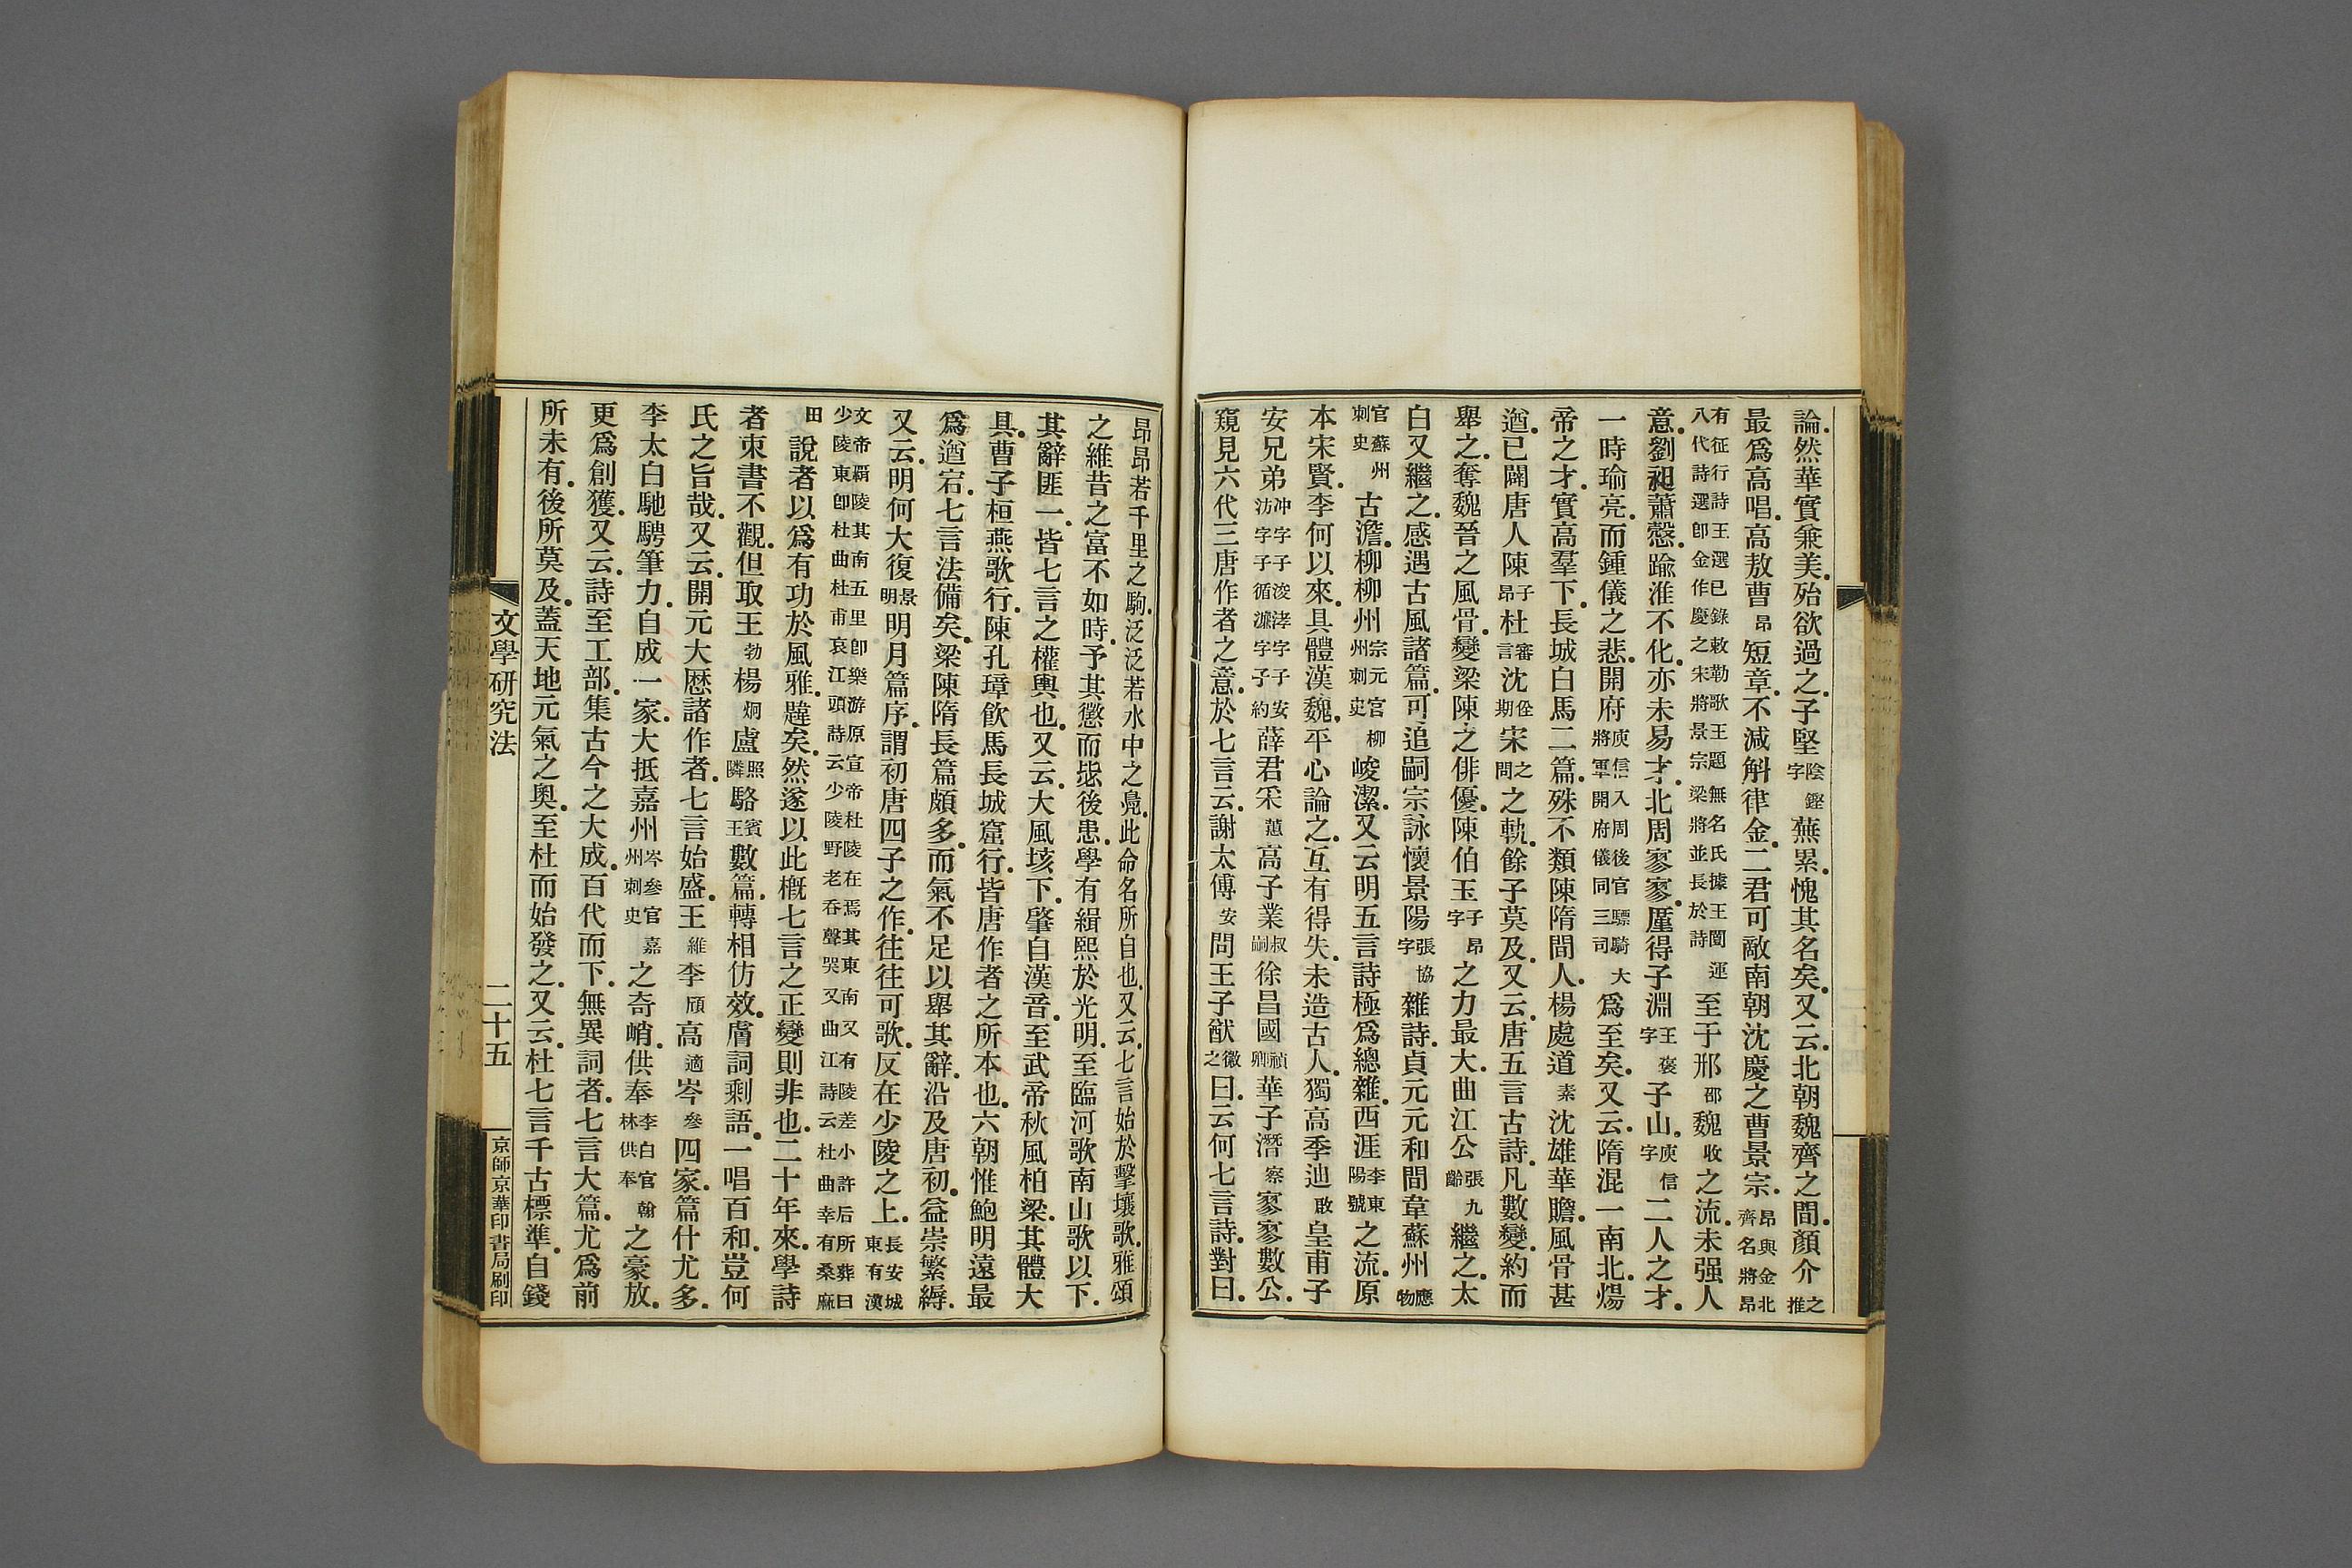 論然華實兼美殆欲過之子堅陰鏗字蕪累愧其名矣又云北朝魏齊之間顏介之推
最爲高唱高敖曹昂短章不減斛律金二君可敵南朝沈慶之曹景宗昂與金北齊名將昂
有征行詩王選已錄敕勒歌王題無名氏據王闓運八代詩選卽金作慶之宋將景宗梁將並長於詩至于邢邵魏收之流未强人
意劉昶蕭慤踰淮不化亦未易才北周寥寥厪得子淵王褒字子山庾信字二人之才
一時瑜亮而鍾儀之悲開府庾信入周後官驃騎大將軍開府儀同三司爲至矣又云隋混一南北煬
帝之才實高羣下長城白馬二篇殊不類陳隋間人楊處道素沈雄華贍風骨甚
遒已闢唐人陳子昂杜審言沈佺期宋之問之軌餘子莫及又云唐五言古詩凡數變約而
舉之奪魏晉之風骨變梁陳之俳優陳伯玉子昂字之力最大曲江公張九齡繼之太
白又繼之感遇古風諸篇可追嗣宗詠懷景陽張協字雜詩貞元元和間韋蘇州應物
官蘇州刺史古澹柳柳州宗元官柳州刺史峻潔又云明五言詩極爲總雜西涯李東陽號之流原
本宋賢李何以來具體漢魏平心論之互有得失未造古人獨高季迪啟皇甫子
安兄弟冲字子浚涍字子安汸字子循濂字子約薛君采蕙高子業叔嗣徐昌國禎卿華子潛察寥寥數公
窺見六代三唐作者之意於七言云謝太傅安問王子猷徽之曰云何七言詩對曰
昂昂若千里之駒泛泛若水中之鳧此命名所自也又云七言始於擊壤歌雅頌
之維昔之富不如時予其懲而毖後患學有緝熙於光明至臨河歌南山歌以下
其辭匪一皆七言之權輿也又云大風垓下肇自漢音至武帝秋風柏梁其體大
具曹子桓燕歌行陳孔璋飲馬長城窟行皆唐作者之所本也六朝惟鮑明遠最
爲遒宕七言法備矣梁陳隋長篇頗多而氣不足以舉其辭沿及唐初益崇繁縟
又云明何大復景明明月篇序謂初唐四子之作往往可歌反在少陵之上長安城東有漢
文帝霸陵其南五里卽樂游原宣帝杜陵在焉其東南又有陵差小許后所葬曰少陵東卽杜曲杜甫哀江頭詩云少陵野老吞聲哭又曲江詩云杜曲幸有桑麻
田說者以爲有功於風雅韙矣然遂以此槪七言之正變則非也二十年來學詩
者束書不觀但取王勃楊烱盧照鄰駱賓王數篇轉相仿效膚詞剩語一唱百和豈何
氏之旨哉又云開元大厯諸作者七言始盛王維李頎高適岑參四家篇什尤多
李太白馳騁筆力自成一家大抵嘉州岑參官嘉州刺史之奇峭供奉李白官翰林供奉之豪放
更爲創獲又云詩至工部集古今之大成百代而下無異詞者七言大篇尤爲前
所未有後所莫及蓋天地元氣之奧至杜而始發之又云杜七言千古標準自錢
文學研究法
二十五
京師京華印書局刷印